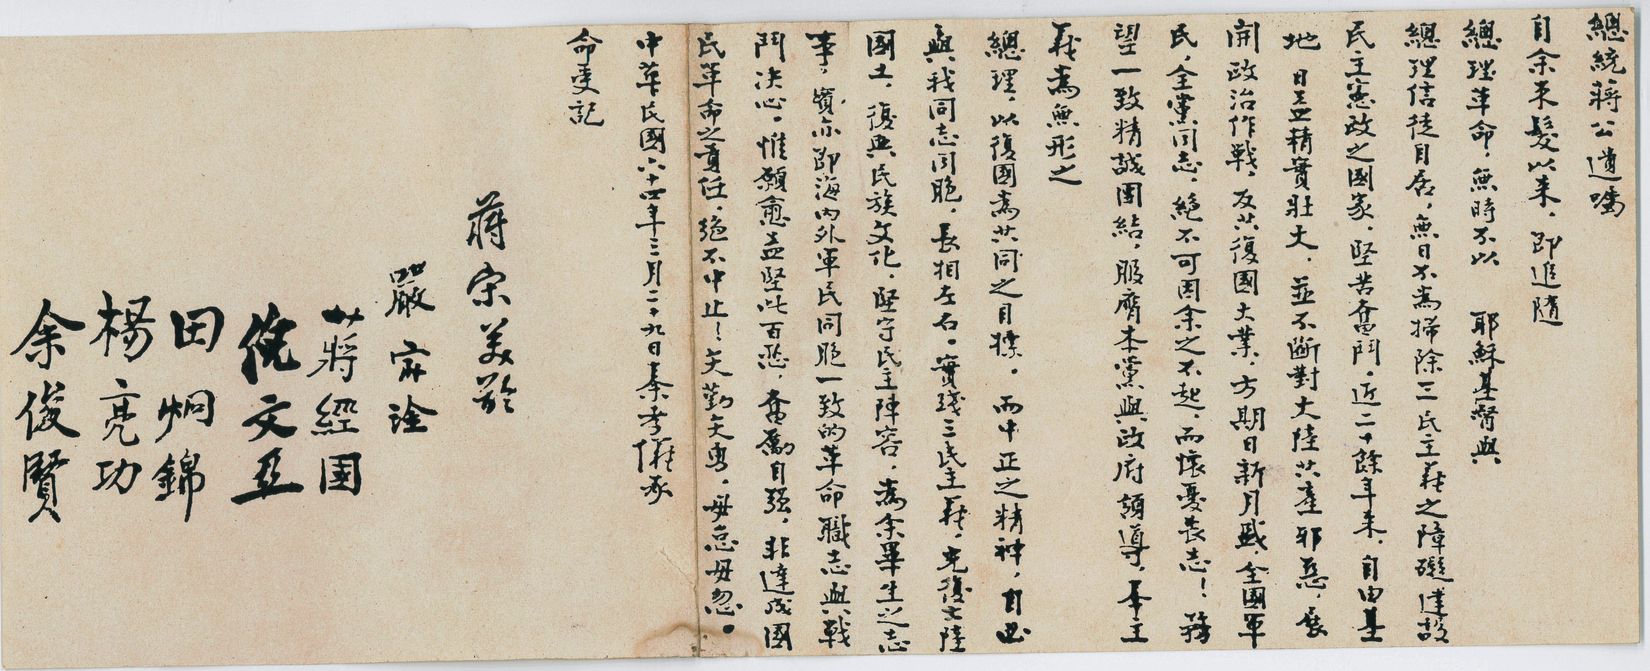 總統蔣公遺囑
自余束髮以來，即追隨
總理革命，無時不以 耶穌基督與
總理信徒自居，無日不為掃除三民主義之障礙建設
民主憲政之國家，堅苦奮鬥，近二十餘年來，自由基
地 日益精實壯大，並不斷對大陸共產邪惡，展
開政治作戰，反共復國大業，方期日新月盛，全國軍
民，全黨同志，絕不可因余之不起，而懷憂喪志！務
望一致精誠團結，服膺本黨與政府領導，奉主
義為無形之
總理，以復國為共同之目標。而中正之精神，自必
與我同志同胞，長相左右。實踐三民主義，光復大陸
國土，復興民族文化，堅守民主陣容，為余畢生之志
事，實亦即海內外軍民同胞一致的革命職志與戰
鬥決心。惟願愈益堅此百忍，奮勵自強，非達成國
民革命之責任，絕不中止！矢勤矢勇，毋怠毋忽。
中華民國六十四年三月二十九日秦孝儀承
命受記
蔣宋美齡
嚴家淦
蔣經國
倪文亞
田炯錦
楊亮功
余俊賢